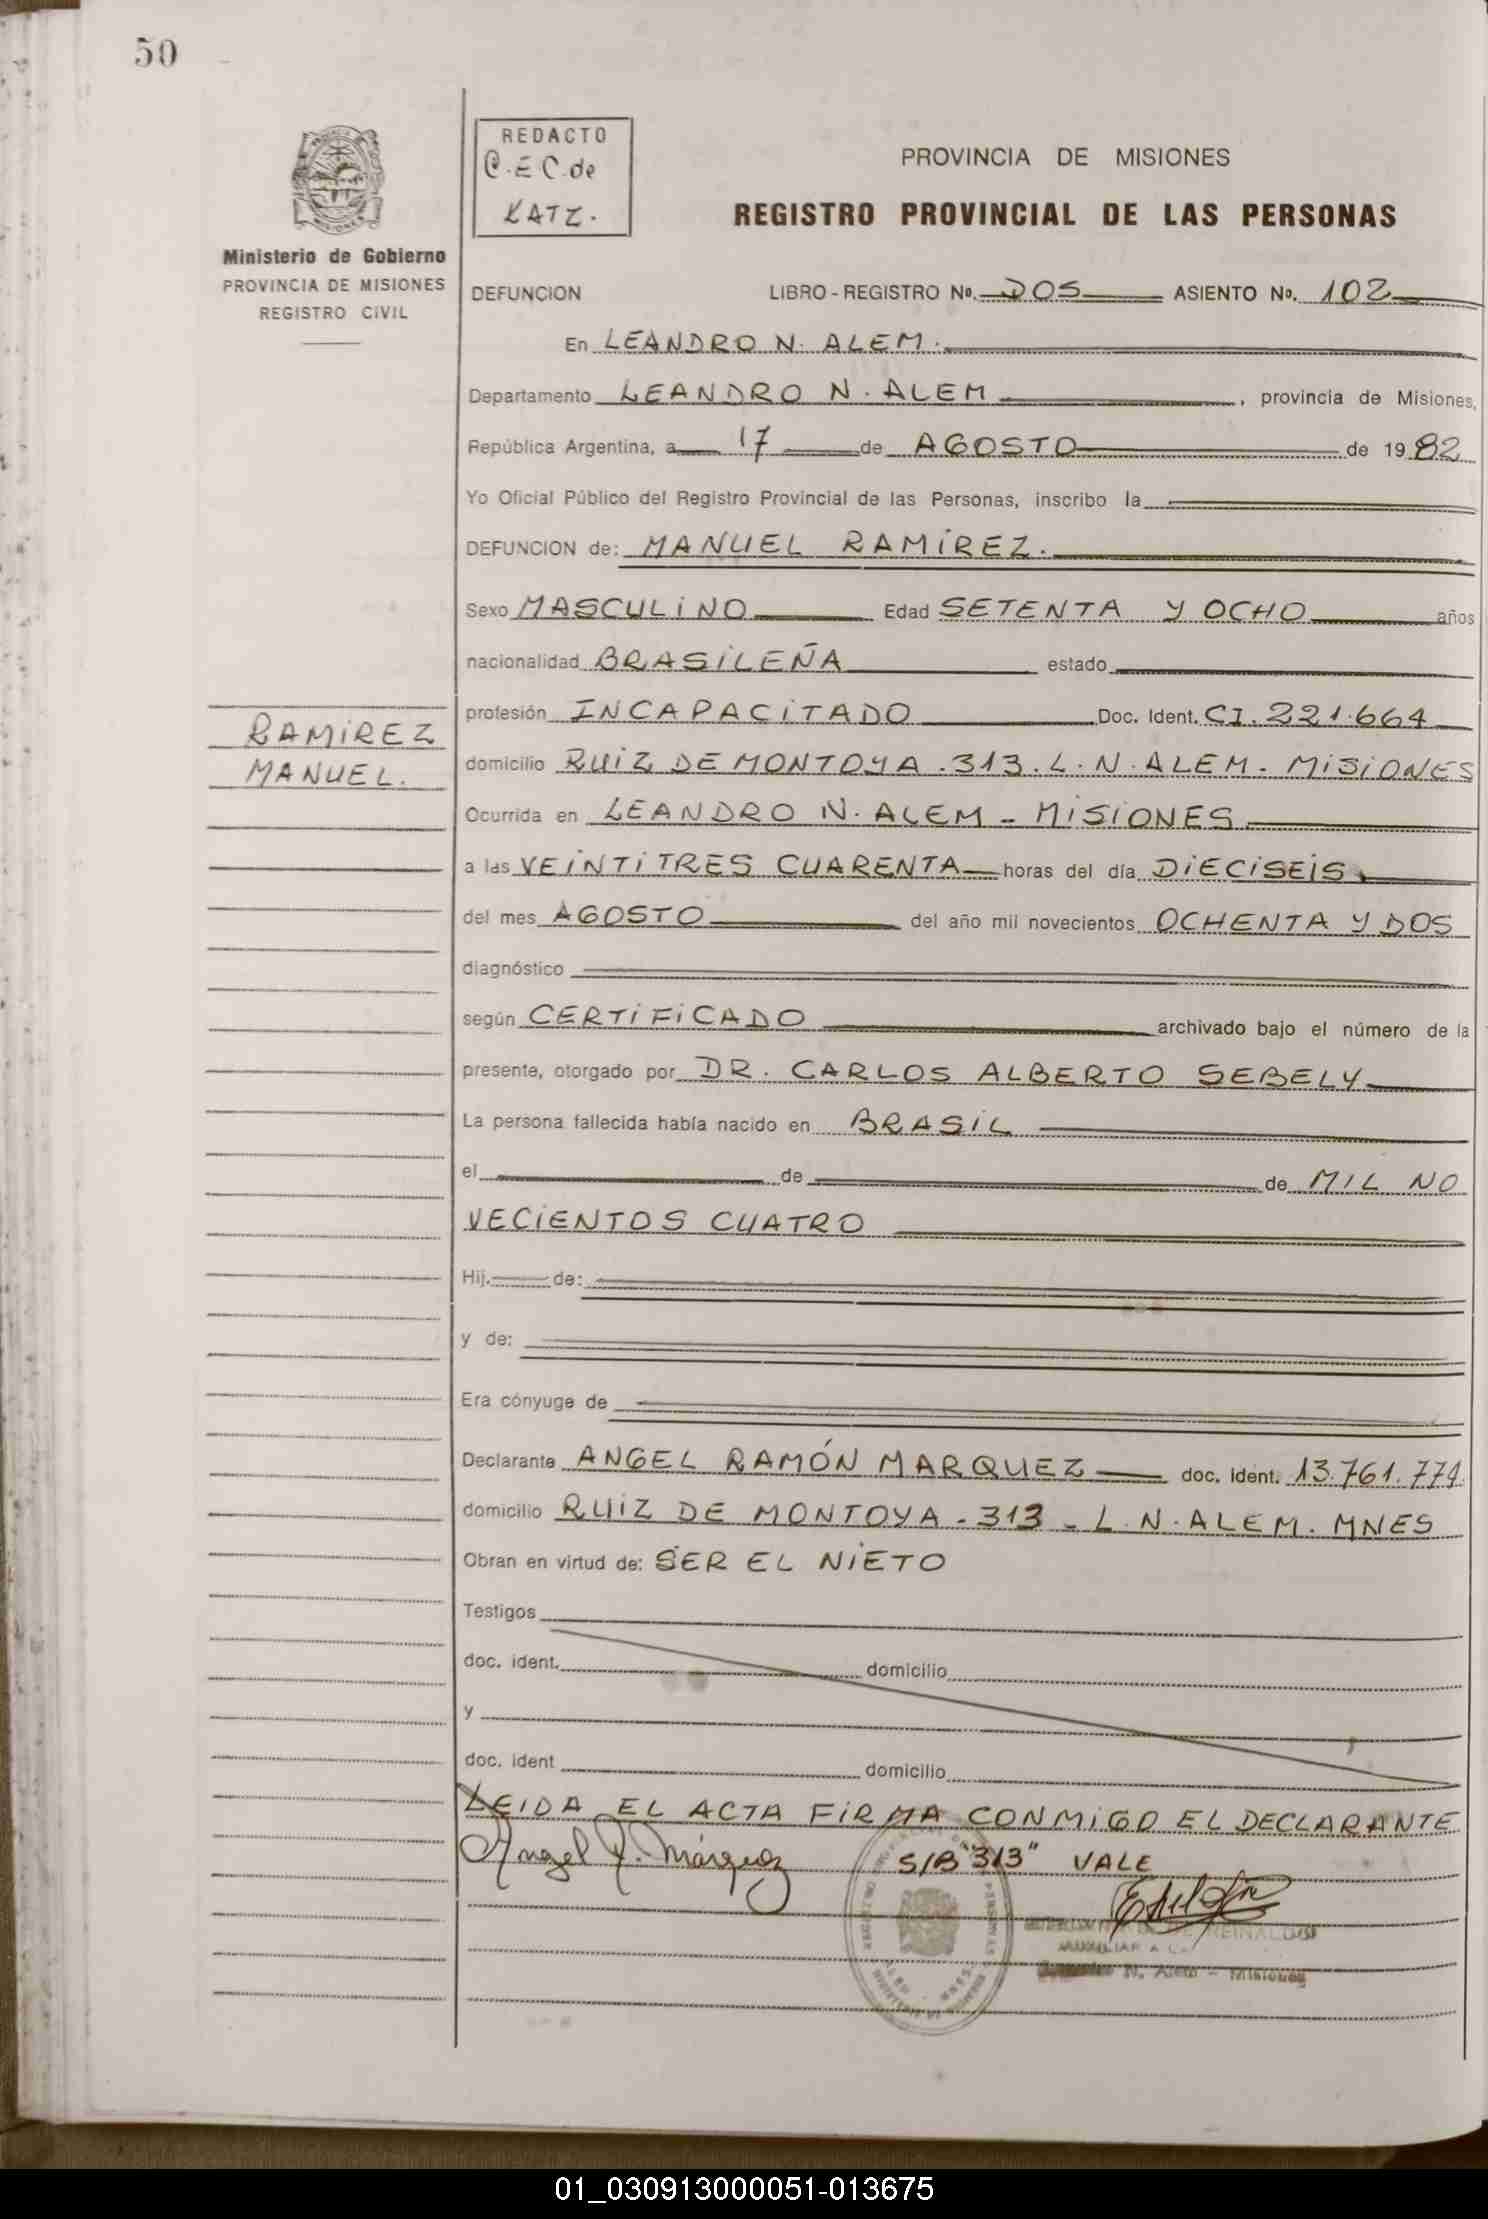 50
REDACTO
C.E.C. de
KATZ.
PROVINCIA DE MISIONES
REGISTRO PROVINCIAL DE LAS PERSONAS
Ministerio de Gobierno
PROVINCIA DE MISIONES
REGISTRO CIVIL
DEFUNCION LIBRO-REGISTRO Nº. DOS ASIENTO Nº. 102
En LEANDRO N. ALEM.
Departamento LEANDRO N. ALEM, provincia de Misiones,
República Argentina, a 17 de AGOSTO de 1982
Yo Oficial Público del Registro Provincial de las Personas, inscribo la
DEFUNCION de: MANUEL RAMIREZ.
Sexo MASCULINO Edad SETENTA Y OCHO años
nacionalidad BRASILEÑA estado
RAMIREZ
MANUEL.
profesión INCAPACITADO Doc. Ident. CI. 221.664
domicilio RUIZ DE MONTOYA. 313. L. N. ALEM. MISIONES
Ocurrida en LEANDRO N. ALEM - MISIONES
a las VEINTITRES CUARENTA horas del día DIECISEIS
del mes AGOSTO del año mil novecientos OCHENTA Y DOS
diagnóstico
según CERTIFICADO archivado bajo el número de la
presente, otorgado por DR. CARLOS ALBERTO SEBELY
La persona fallecida había nacido en BRASIL
el de de MIL NO
VECIENTOS CUATRO
Hij. de:
y de:
Era cónyuge de
Declarante ANGEL RAMÓN MARQUEZ doc. ident. 13.761.774
domicilio RUIZ DE MONTOYA. 313 - L. N. ALEM. MNES
Obran en virtud de: SER EL NIETO
Testigos
doc. ident. domicilio
y
doc. ident domicilio
LEIDA EL ACTA FIRMA CONMIGO EL DECLARANTE
Angel R. Márquez S/B "313" VALE
REINALDO
AUXILIAR A
N. Alem - Misiones
01_030913000051-013675